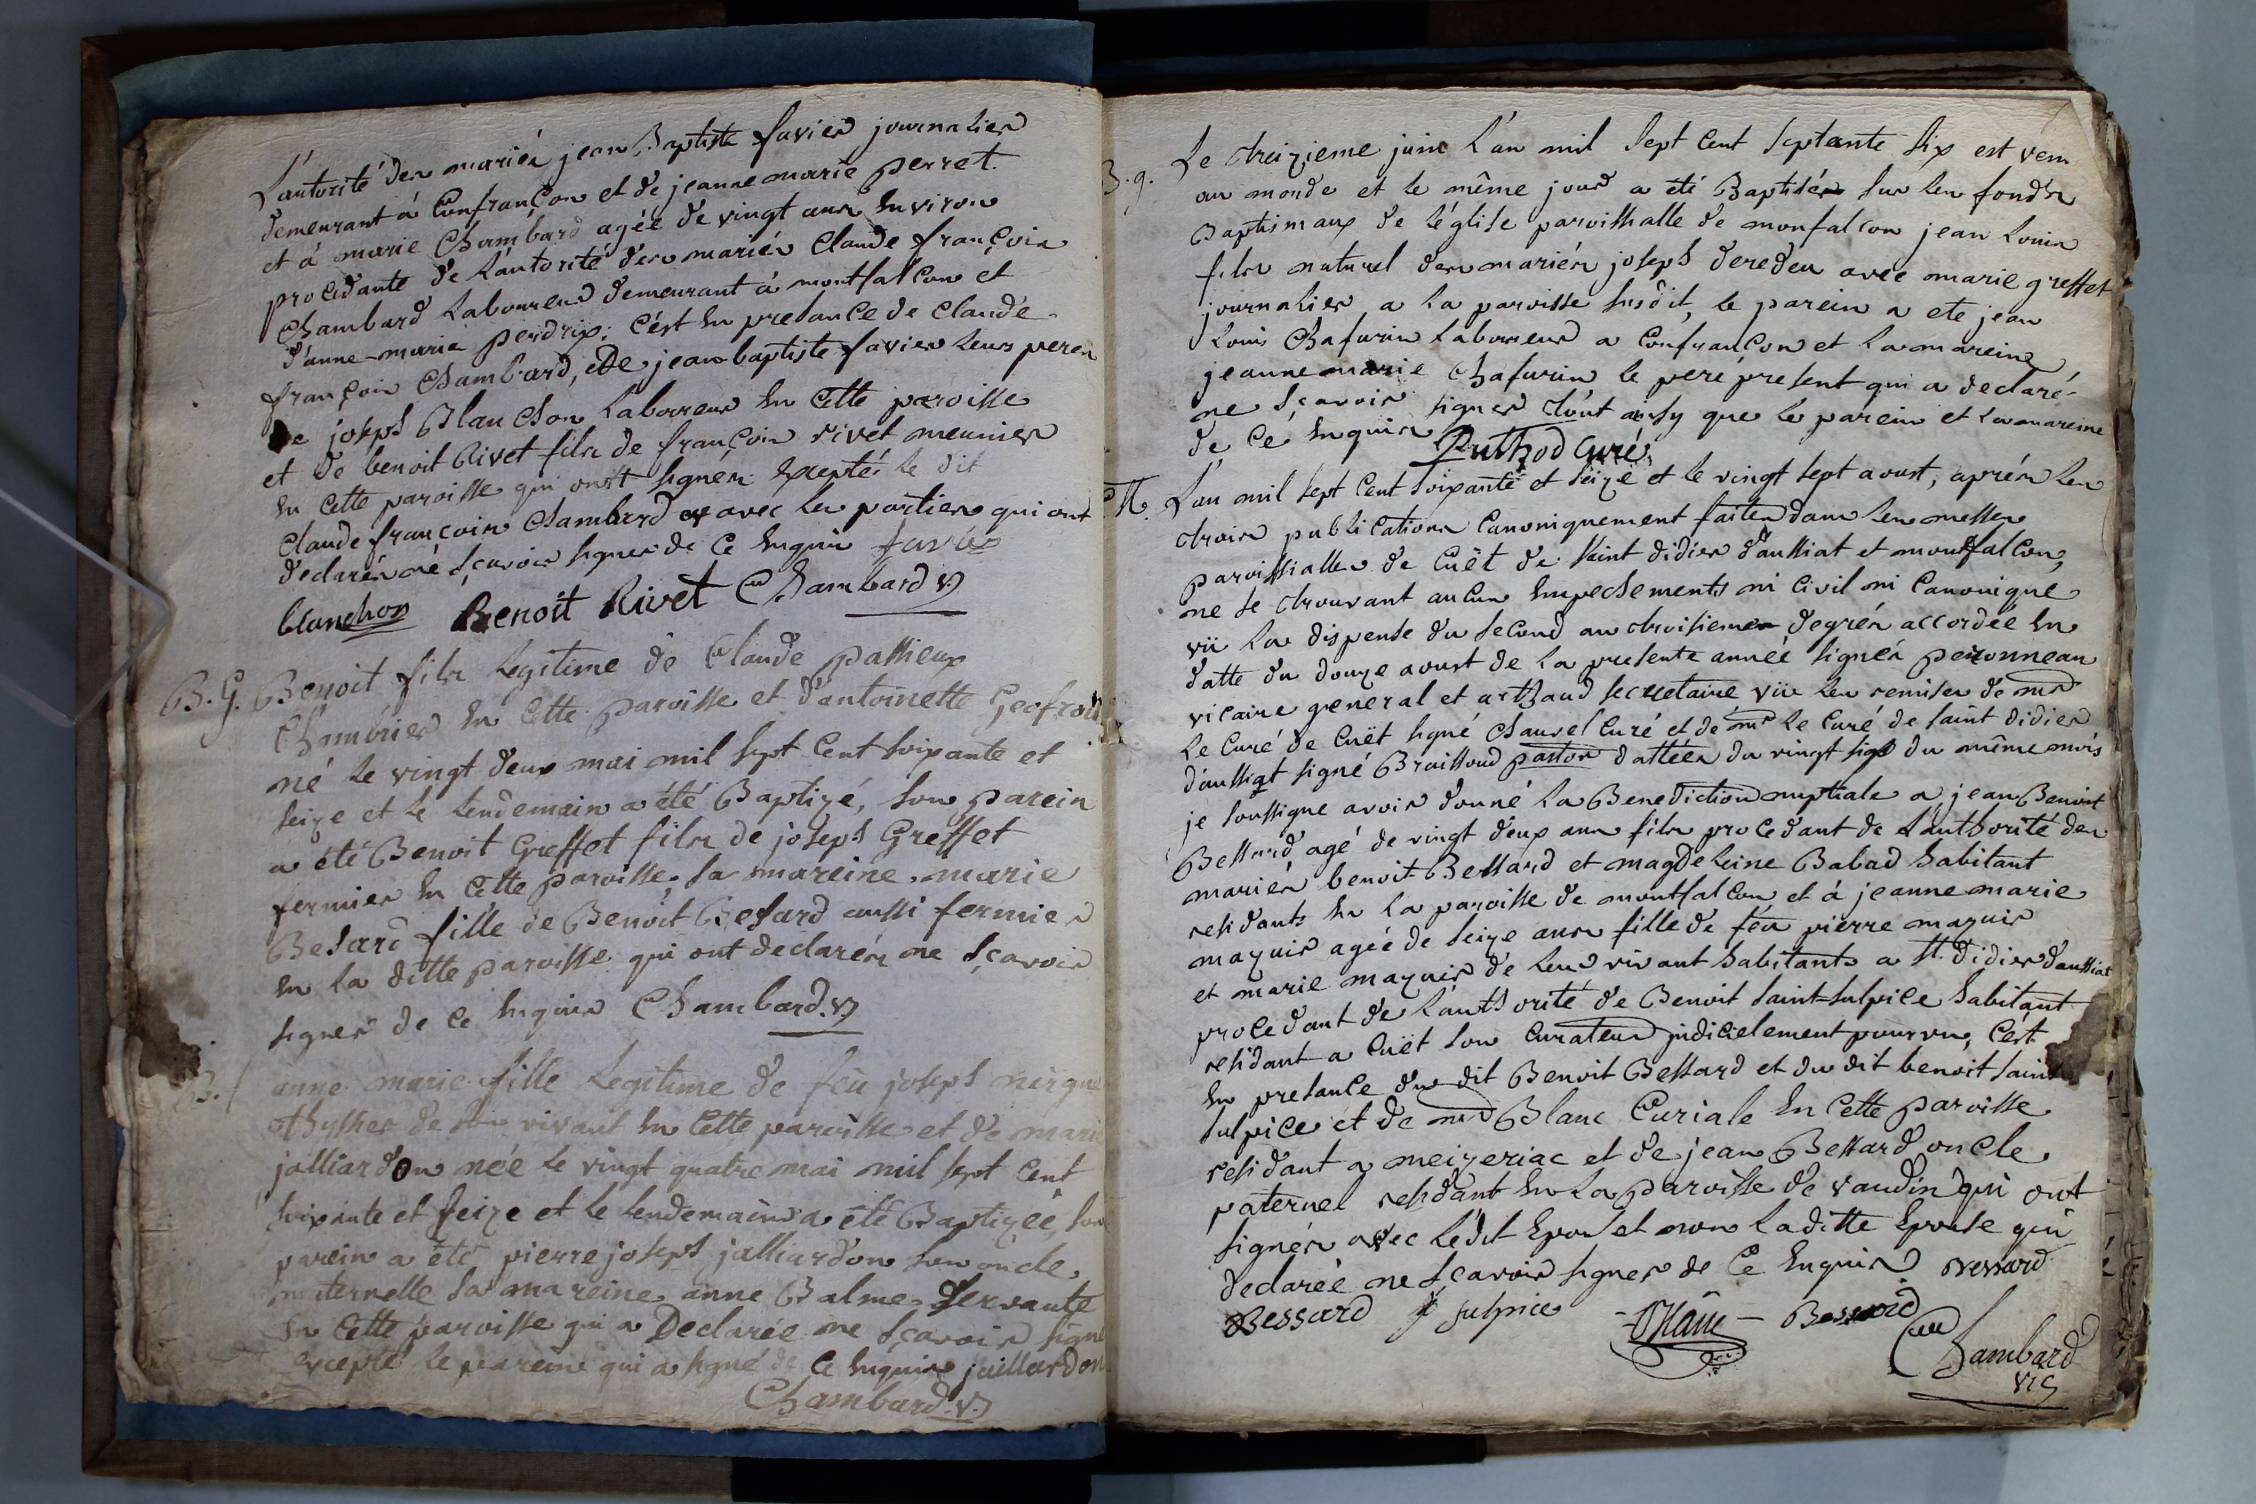 L'autorité des mariés jean Baptiste favier journalier
demeurant à Confrançon et de jeanne marie perret
et à marie Chambard agée de vingt ans environ
procedante de L'autorité des mariés Claude françois
Chambard Laboureur demeurant à montfalcon et
d'anne-marie perdrix; c'est en presance de claude
françois Chambard, et De jean baptiste favier leurs peres
De joseph Blanchon Laboureur en cette paroisse
et de benoit Rivet fils de françois rivet meunier
en cette paroisse qui onst signés exceptés le dit
claude françois Chambard avec les parties qui ont
declarés né sçavoir signer de ce enquis favier
blanchon Benoit Rivet Chambard v
B. G. Benoit fils Legitime de Claude passieux
Chambrier en cette paroisse et d'antoinette Geofrois
né le vingt deux mai mil sept cent soixante et
seize et le lendemain a été Baptizé, son parein
a été Benoit Greffet fils de joseph Greffet
fermier en cette paroisse, sa mareine marie
Besard fille de Benoit Besard aussi fermier
en la ditte paroisse qui ont declarés ne sçavoir
signer de ce enquis Chambard. v
B. f anne marie fille Legitime de feu joseph
de son vivant en cette paroisse et de marie
jalliardon née le vingt quatre mai mil sept cent
soixante et seize et le lendemain a été Baptizée, son
parein a été pierre joseph jalliardon son oncle
maternelle sa mareine anne Balme servante
en cette paroisse qui a Declarée ne sçavoir signer
excepté le parein qui a signé de ce enquis jaillardon
Chambard. v.
B. g. Le treizieme juin L'an mil sept cent septante six est venu
au monde et le même jour a été Baptisés sur les fonds
Baptismaux de l'église paroissialle de monfalcon jean Louis
fils naturel des mariés joseph deredeu avec marie greffet
journalier a la paroisse susdit, le parein a ete jean
Louis Chafurin Laboureur a confrançon et la mareine
jeanne marie Chafurin le pere present qui a declaré
ne sçavoir signer tout ausy que le parein et la mareine
de cé enquis Puthod Curé
M. L'an mil sept cent soixante et seize et le vingt sept aoust, aprés les
trois publications Canoniquement faites dans les messes
paroissialles de Cuët de saint didier d'aussiat et montfalcon,
ne se trouvant aucun empechements ni civil ni canonique
vü la dispense du second au troisieme degrés accordée en
datte du douze aoust de la presente année signés peronneau
vicaire general et arthaud secretaire vüe les remises de mr
le Curé de Cuët signé Chauvel Curé et de mr le Curé de saint didier
d'aussiat signé Braissoud pastor dattées du vingt six du même mois
je soussigne avoir donné la Benediction nuptiale a jean Benoit
Bessard agé de vingt deux ans fils procedant de L'authorité des
mariés benoit Bessard et magdeleine Babad habitant
residants en la paroisse de montfalcon et à jeanne marie
mazuir agée de seize ans fille de feu pierre mazuir
et marie mazuir de leur vivant habitants a St. didier d'aussiat
procedant de L'authorité de Benoit saint-sulpice habitant
residant a Cuët son curateur judicielement pourvu, c'est
en presance du dit Benoit Bessard et du dit benoit saint
sulpice et de mr Blanc Curiale en cette paroisse
residant a meizeriac et de jean Bessard oncle
paternel residant en la paroisse de vaudin qui ont
signés avec lédit epoux et non laditte epouse qui
declarée ne sçavoir signer de Ce enquis Bessard
Bessard sulpice Blanc Bessard
Chambard
vic